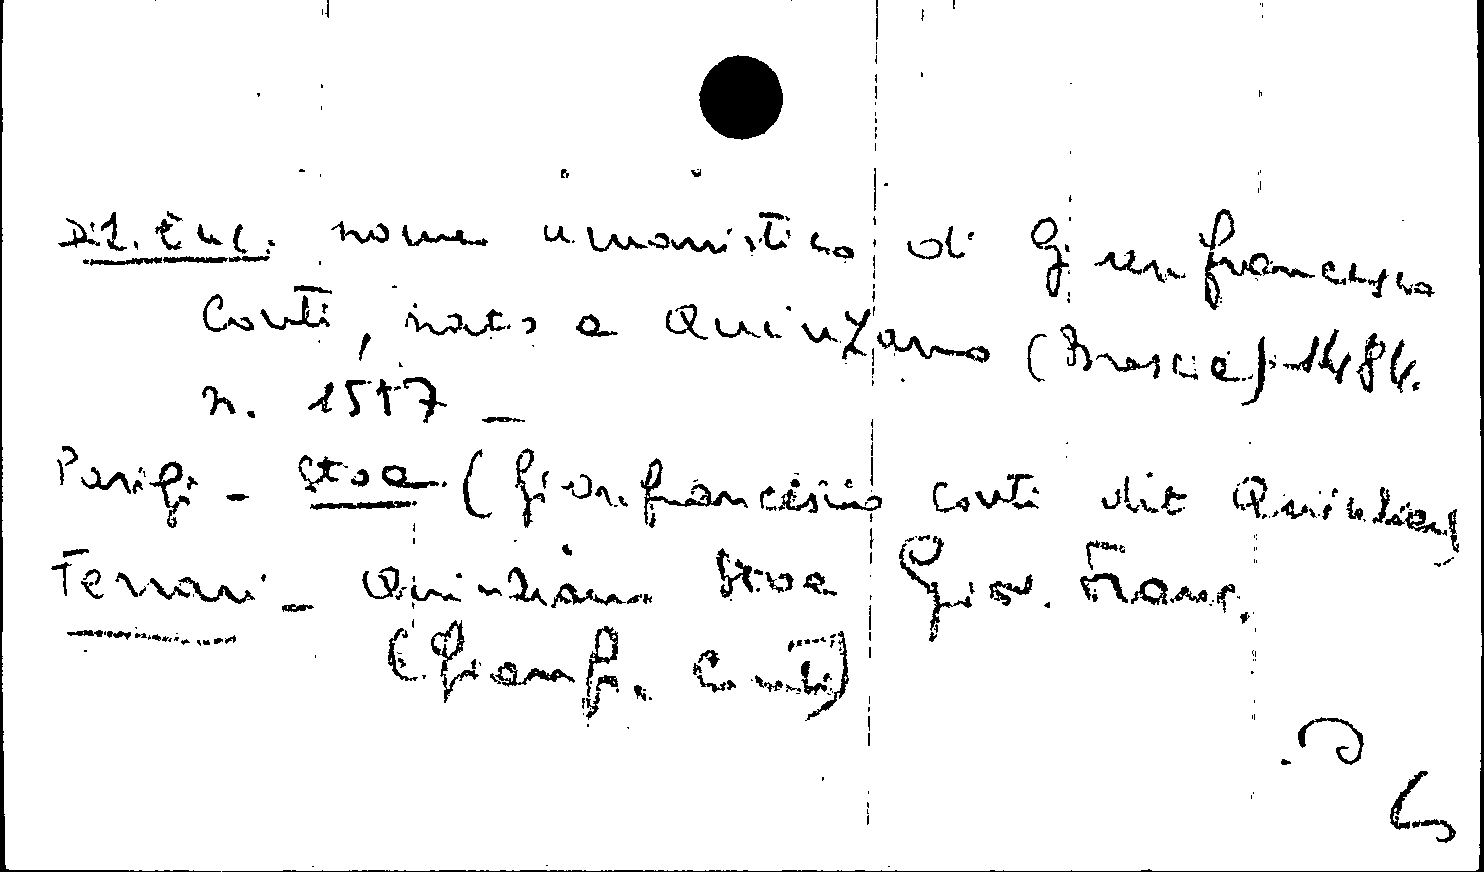 Diz. Enc. nome umanistico di Gianfrancesco
Conti, nato a Quinzano (Brescia) 1484.
n. 1557 -
Parigi - Stoa (Gianfrancesco Conti dit Quinziano)
Ferrari - Quinziano Stoa Giov. Franc.
(Gianfr. Conti)